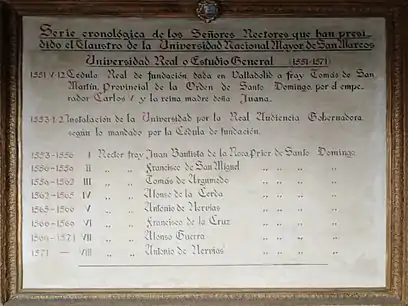 Serie cronológica de los Señores Rectores que han presi-
dido el Claustro de la Universidad Nacional Mayor de San Marcos
Universidad Real o Estudio General (1551-1571)
1551 V 12 Cédula Real de fundación, dada en Valladolid a fray Tomás de San
Martín, Provincial de la Orden de Santo Domingo, por el empe-
rador Carlos V y la reina madre doña Juana.
1553-1-2 Instalación de la Universidad por la Real Audiencia Gobernadora,
según lo mandado por la Cédula de fundación.
1553-1556 I Rector fray Juan Bautista de la Roca, Prior de Santo Domingo
1556-1559 II " " Francisco de San Miguel " " " "
1559-1562 III " " Tomás de Argumedo " " " "
1562-1565 IV " " Alonso de la Cerda " " " "
1565-1566 V " " Antonio de Hervias " " " "
1566-1569 VI " " Francisco de la Cruz " " " "
1569-1571 VII " " Alonso Guerra " " " "
1571 — VIII " " Antonio de Hervias " " " "